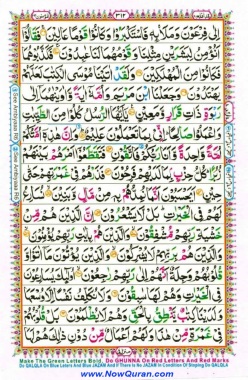 ٣١٢
إِلَىٰ فِرْعَوْنَ وَمَلَا۟ئِهٖ فَاسْتَكْبَرُوْا وَكَانُوْا قَوْمًا عَالِيْنَ فَقَالُوْٓا
اَنُؤْمِنُ لِبَشَرَيْنِ مِثْلِنَا وَقَوْمُهُمَا لَنَا عٰبِدُوْنَ فَكَذَّبُوْهُمَا
فَكَانُوْا مِنَ الْمُهْلَكِيْنَ وَلَقَدْ اٰتَيْنَا مُوْسَى الْكِتٰبَ لَعَلَّهُمْ
يَهْتَدُوْنَ وَجَعَلْنَا ابْنَ مَرْيَمَ وَاُمَّهٗٓ اٰيَةً وَّاٰوَيْنٰهُمَآ اِلٰى
رَبْوَةٍ ذَاتِ قَرَارٍ وَّمَعِيْنٍ يٰٓاَيُّهَا الرُّسُلُ كُلُوْا مِنَ الطَّيِّبٰتِ
وَاعْمَلُوْا صَالِحًا اِنِّيْ بِمَا تَعْمَلُوْنَ عَلِيْمٌ وَاِنَّ هٰذِهٖٓ اُمَّتُكُمْ
اُمَّةً وَّاحِدَةً وَّاَنَا رَبُّكُمْ فَاتَّقُوْنِ فَتَقَطَّعُوْٓا اَمْرَهُمْ بَيْنَهُمْ
زُبُرًا كُلُّ حِزْبٍۭ بِمَا لَدَيْهِمْ فَرِحُوْنَ فَذَرْهُمْ فِيْ غَمْرَتِهِمْ
حَتّٰى حِيْنٍ اَيَحْسَبُوْنَ اَنَّمَا نُمِدُّهُمْ بِهٖ مِنْ مَّالٍ وَّبَنِيْنَ نُسَارِعُ
لَهُمْ فِي الْخَيْرٰتِ بَلْ لَّا يَشْعُرُوْنَ اِنَّ الَّذِيْنَ هُمْ مِّنْ
خَشْيَةِ رَبِّهِمْ مُّشْفِقُوْنَ وَالَّذِيْنَ هُمْ بِاٰيٰتِ رَبِّهِمْ يُؤْمِنُوْنَ
وَالَّذِيْنَ هُمْ بِرَبِّهِمْ لَا يُشْرِكُوْنَ وَالَّذِيْنَ يُؤْتُوْنَ مَآ اٰتَوْا
وَّقُلُوْبُهُمْ وَجِلَةٌ اَنَّهُمْ اِلٰى رَبِّهِمْ رٰجِعُوْنَ اُولٰٓئِكَ يُسٰرِعُوْنَ
فِي الْخَيْرٰتِ وَهُمْ لَهَا سٰبِقُوْنَ وَلَا نُكَلِّفُ نَفْسًا اِلَّا وُسْعَهَا
وَلَدَيْنَا كِتٰبٌ يَّنْطِقُ بِالْحَقِّ وَهُمْ لَا يُظْلَمُوْنَ بَلْ قُلُوْبُهُمْ
فِيْ غَمْرَةٍ مِّنْ هٰذَا وَلَهُمْ اَعْمَالٌ مِّنْ دُوْنِ ذٰلِكَ هُمْ لَهَا
Make The Green Letters Bold, Do GHUNNA On Red Letters And Red Marks
Do QALQLA On Blue Leters And Blue JAZAM And If There Is No JAZAM In Condition Of Stoping Do QALQLA
www.NowQuran.com